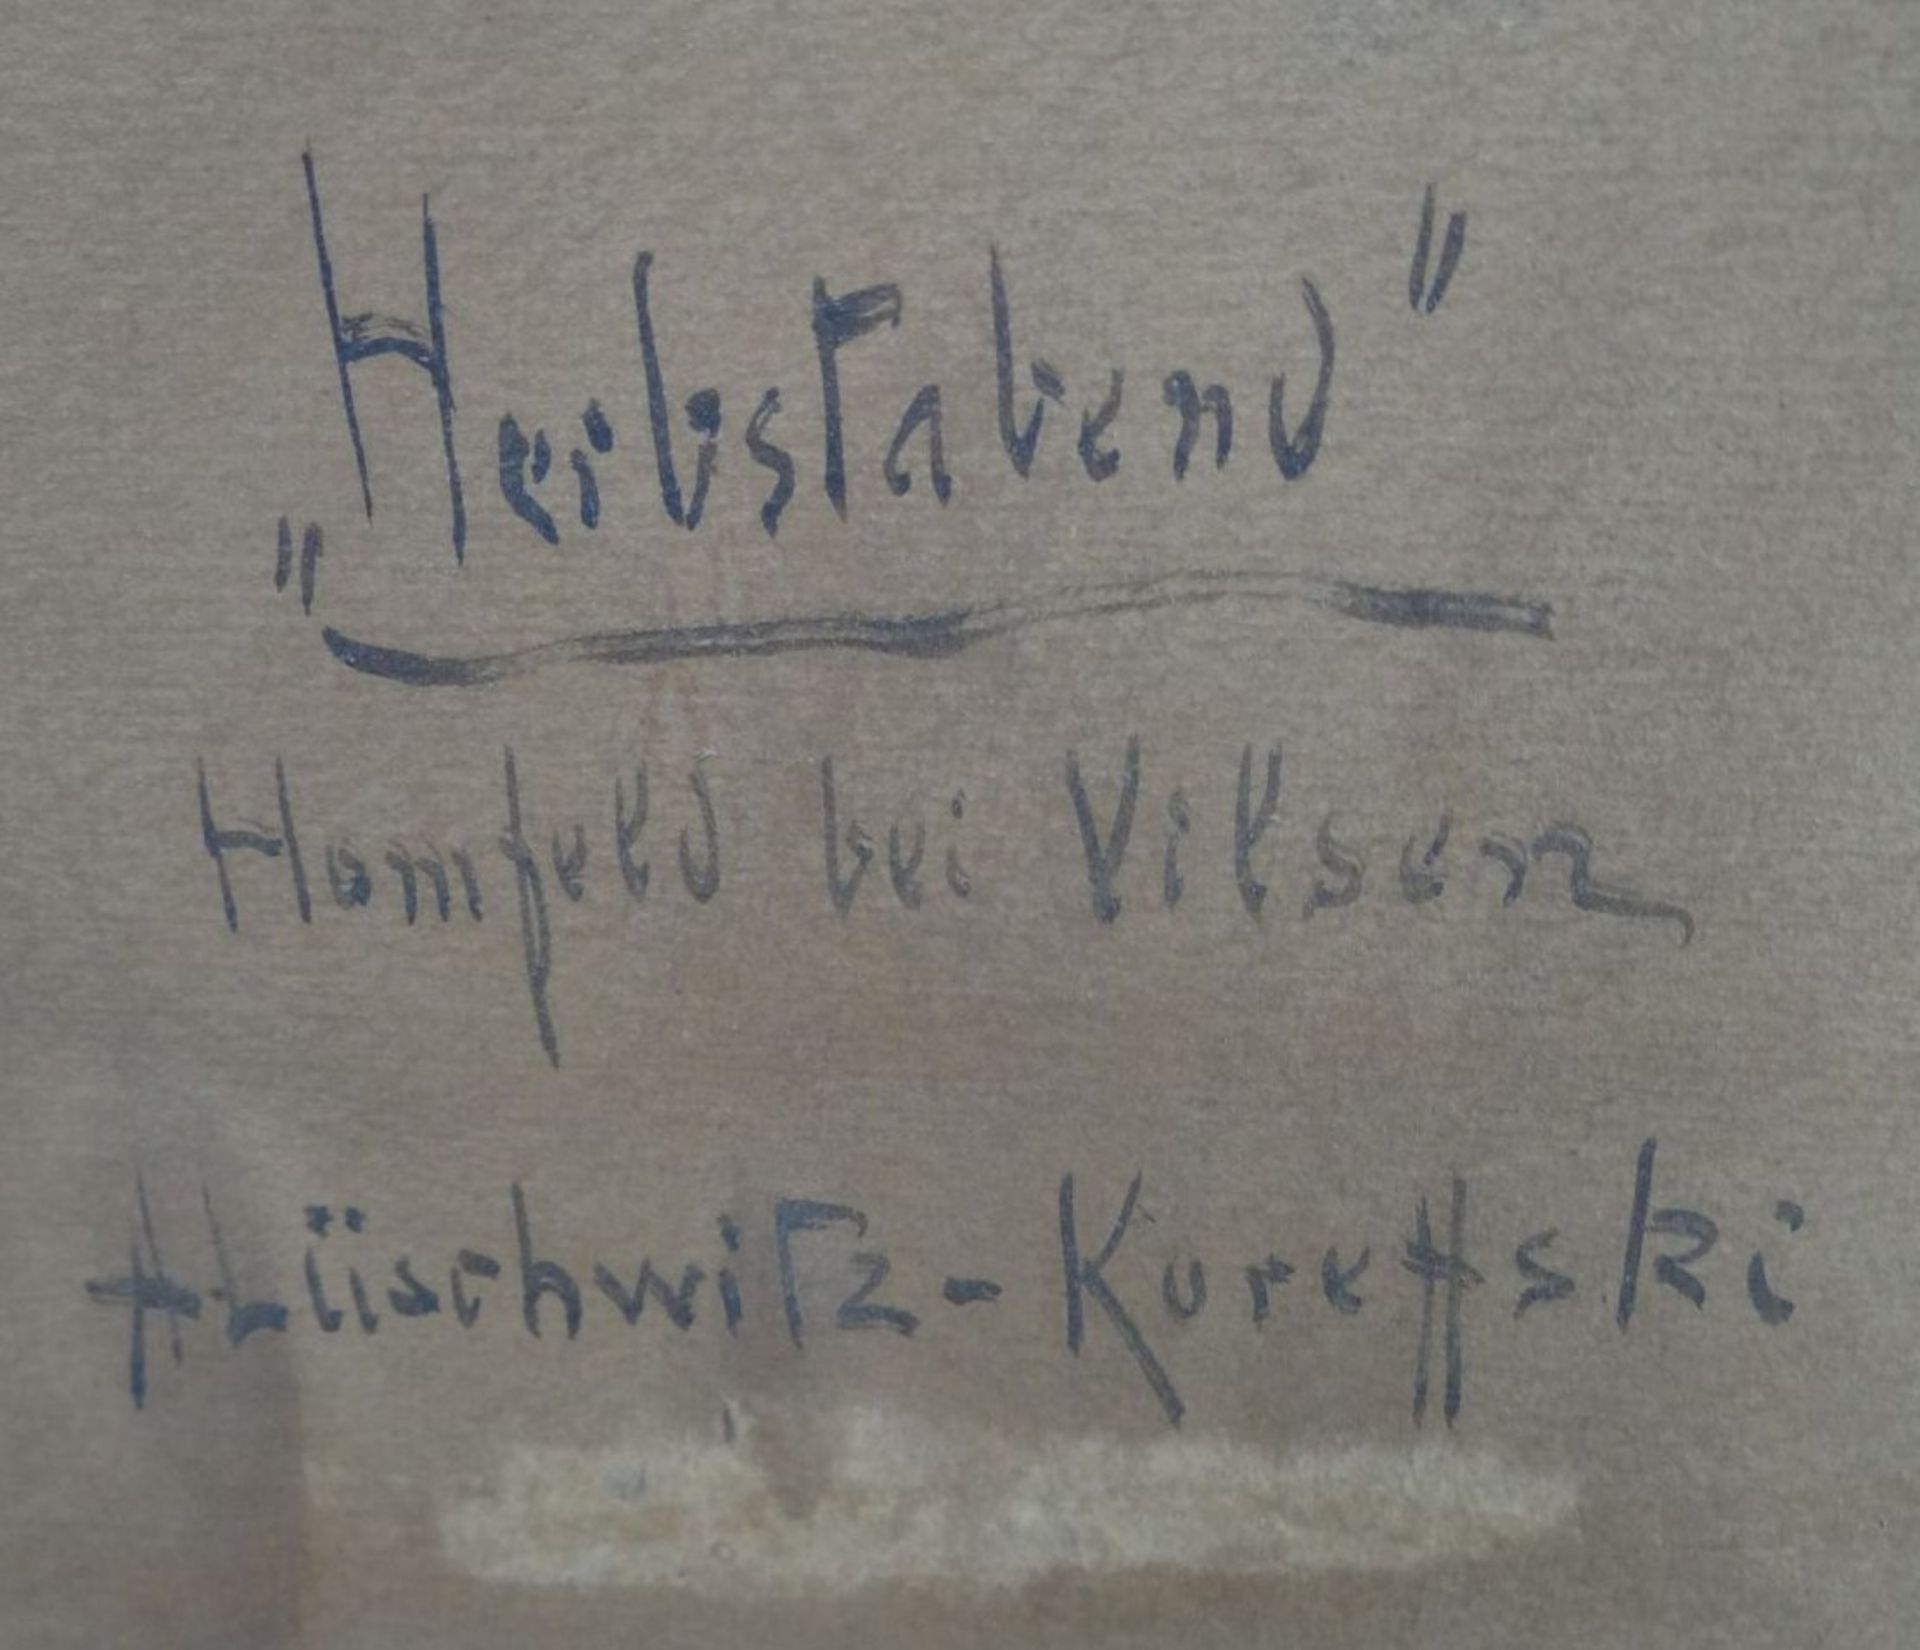 „Herbstabend"
Homfeld bei Vilsen
A Lüschwitz-Koreffski